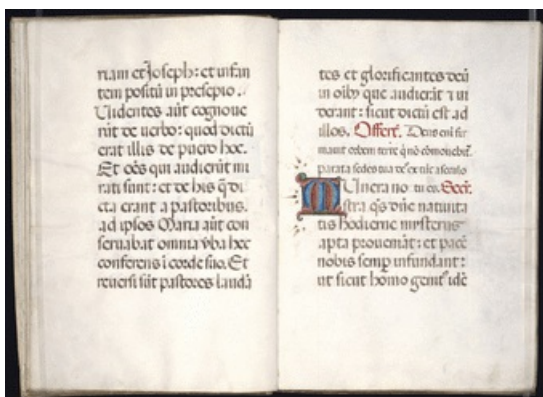 riam et Joseph: et infan
tem positū in presepio.
Uidentes aūt cognoue
rūt de uerbo: quod dictū
erat illis de puero hoc.
Et oēs qui audierūt mi
rati sunt: et de his q̄ di
cta erant a pastoribus.
ad ipsos Maria aūt con
seruabat omnia v̄ba hec
conferens ī corde suo. Et
reuersi sūt pastores laudā
tes et glorificantes deū
in oībꝰ que audierāt ⁊ ui
derant: sicut dictū est ad
illos. Offert̄. Deus enī fir
mauit orbem terre q̄ nō cōmouebit̄.
parata sedes tua de ex tūc a seculo
Munera no tu es. Secr̄.
stra q̄s dn̄e natiuita
tis hodierne mysterijs
apta proueniāt: et pacē
nobis semp̄ infundant:
ut sicut homo genit̉ idē